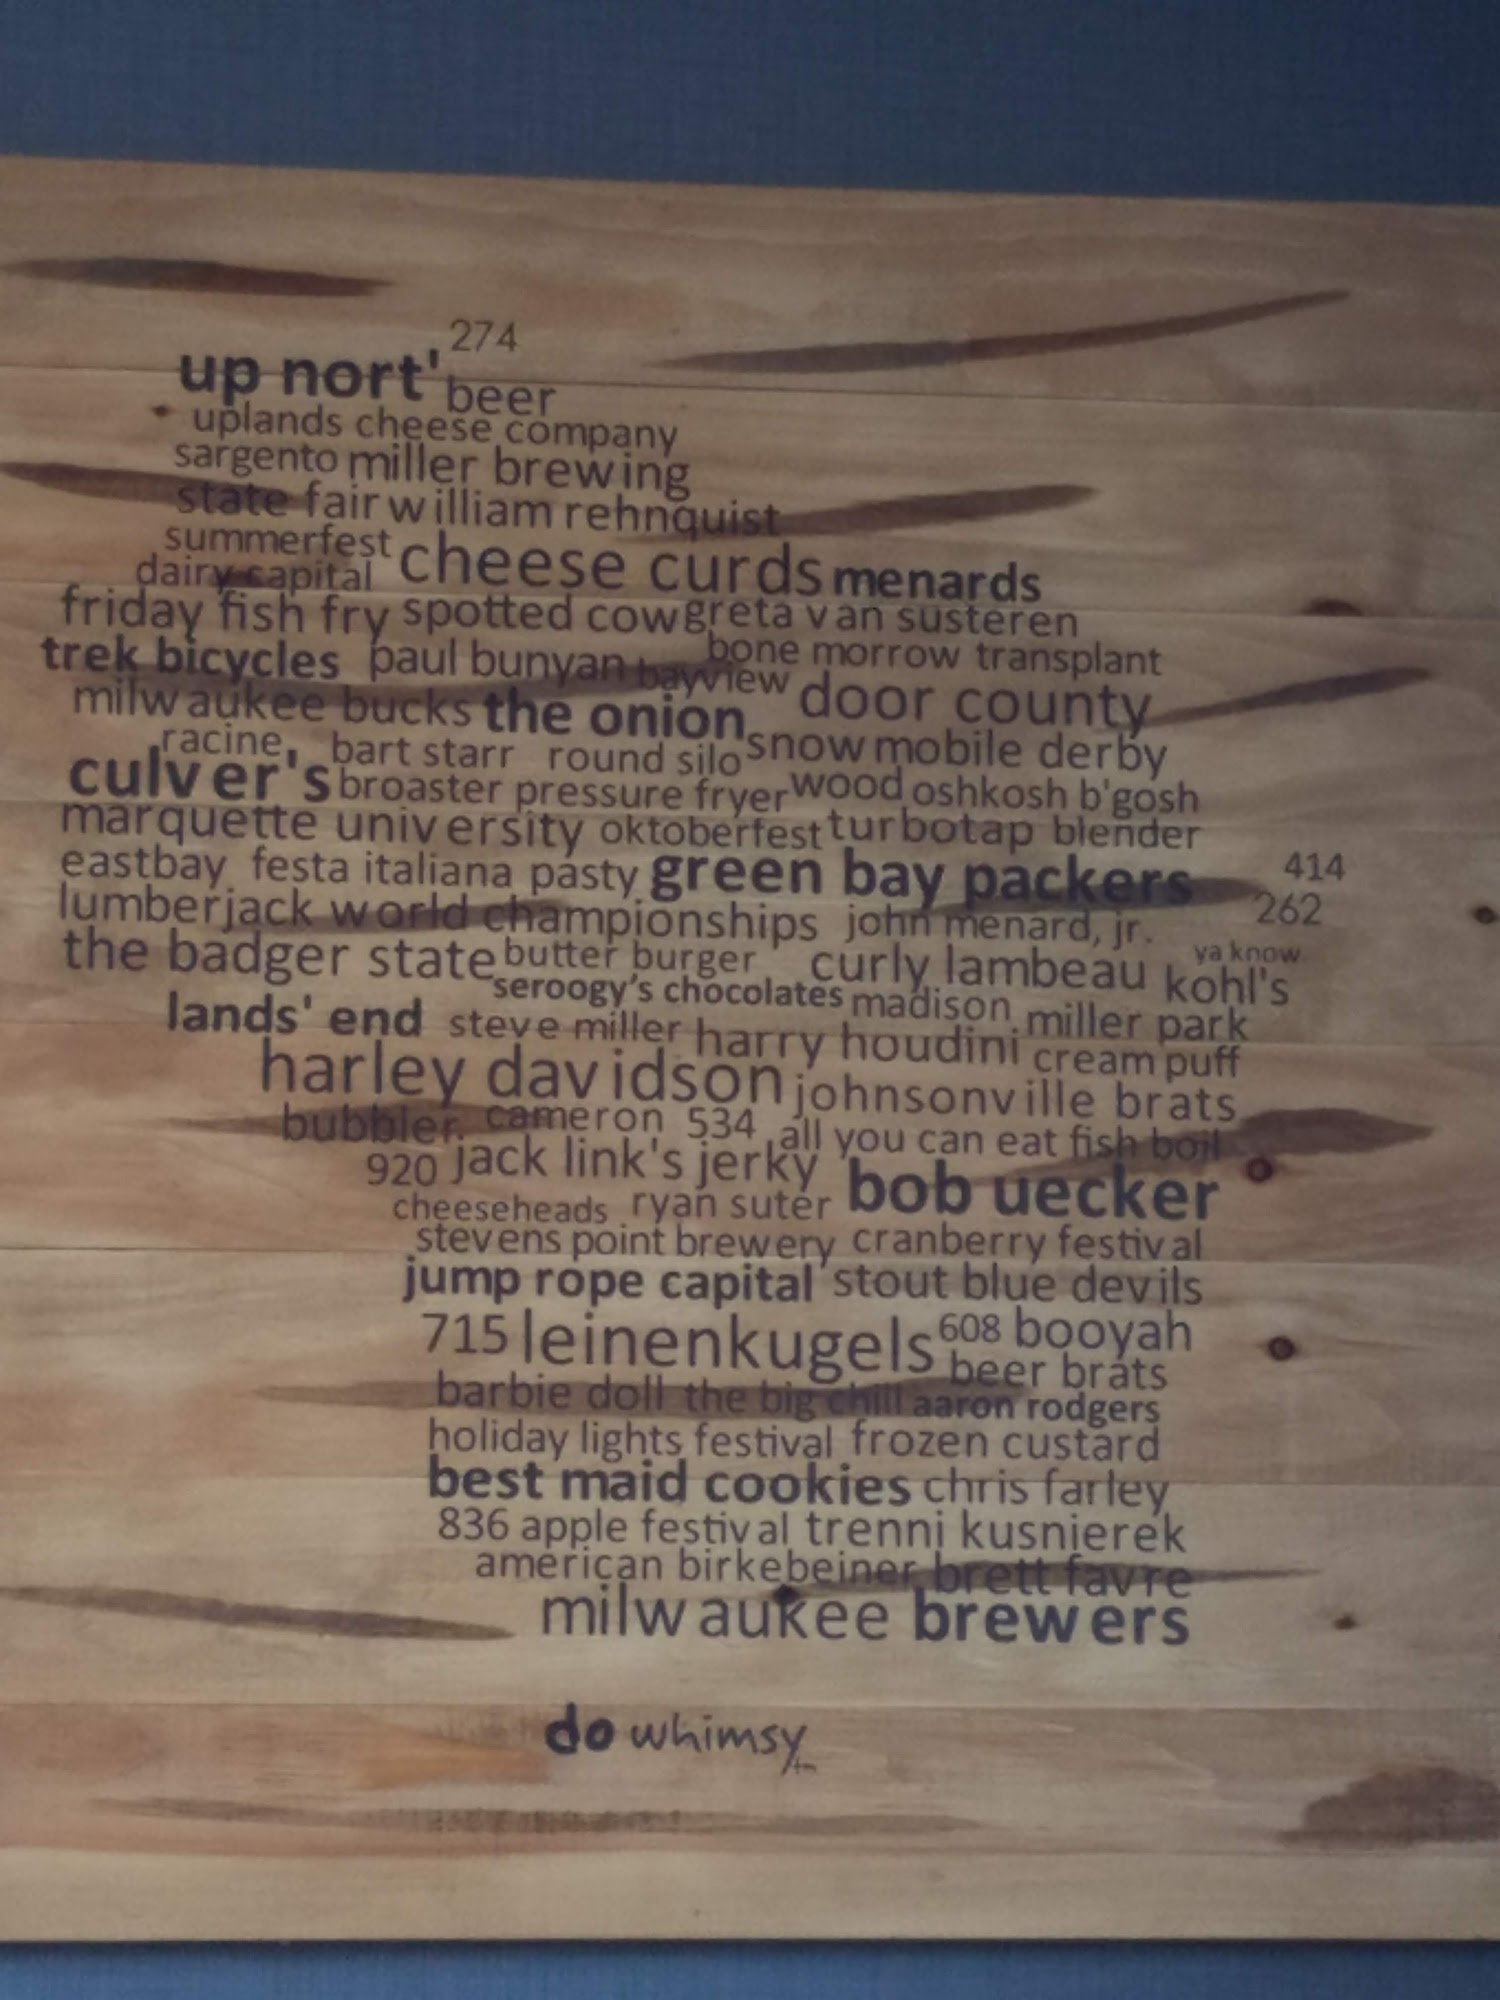 274
up nort' beer
uplands cheese company
sargento miller brewing
state fair william rehnquist
summerfest cheese curds menards
dairy capital
friday fish fry spotted cow greta van susteren
trek bicycles paul bunyan bayview bone morrow transplant
milwaukee bucks the onion door county
racine bart starr round silo snowmobile derby
culver's broaster pressure fryer wood oshkosh b'gosh
marquette university oktoberfest turbotap blender
eastbay festa italiana pasty green bay packers 414
lumberjack world championships john menard, jr. 262
the badger state butter burger curly lambeau ya know kohl's
seroogy's chocolates madison miller park
lands' end steve miller harry houdini cream puff
harley davidson johnsonville brats
bubbler cameron 534 all you can eat fish boil
920 jack link's jerky bob uecker
cheeseheads ryan suter
stevens point brewery cranberry festival
jump rope capital stout blue devils
715 leinenkugels 608 booyah
beer brats
barbie doll the big chill aaron rodgers
holiday lights festival frozen custard
best maid cookies chris farley
836 apple festival trenni kusnierek
american birkebeiner brett favre
milwaukee brewers
do whimsy tm